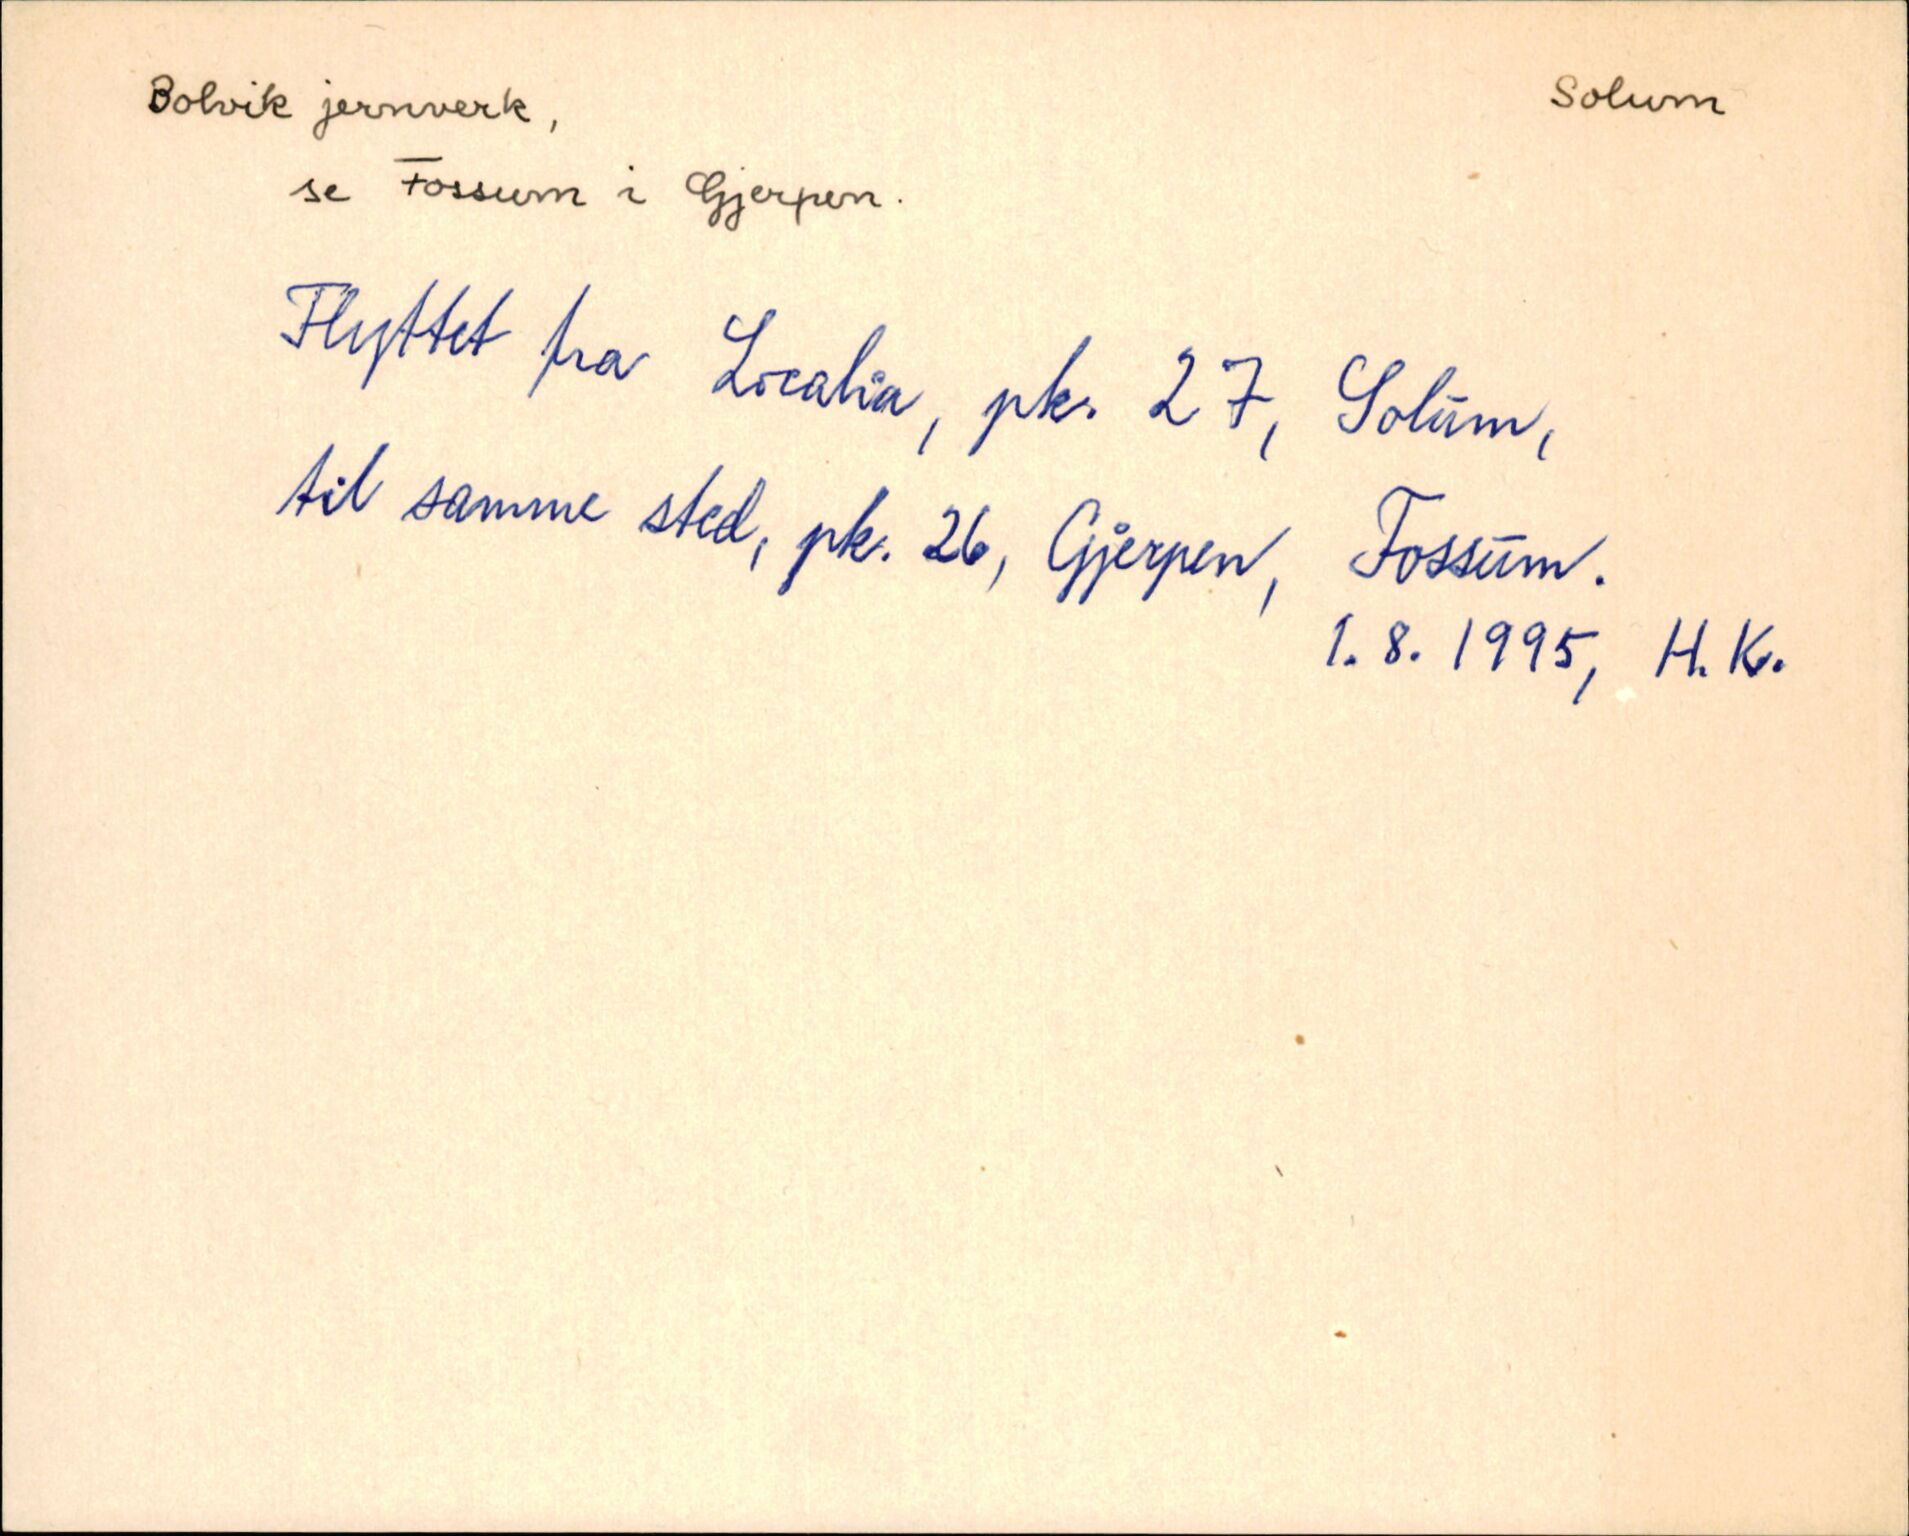 Bolvik jernverk,
Solum
se Fossum i Gjerpen.
Flyttet fra Localia, pk. 27, Solum,
til samme sted, pk. 26, Gjerpen, Fossum.
1.8.1995, H.K.